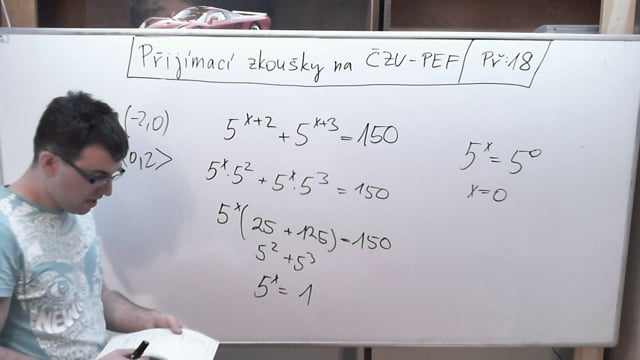 Přijímací zkoušky na ČZU-PEF Př:18
(-2,0)
0,2>
5^{x+2} + 5^{x+3} = 150
5^x · 5^2 + 5^x · 5^3 = 150
5^x (25 + 125) = 150
5^2 + 5^3
5^x = 1
5^x = 5^0
x = 0
NEW